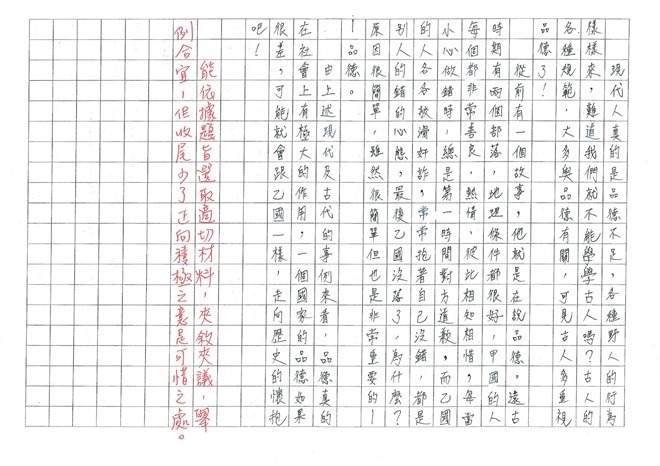 現代人真的是品德不足,各種野人的行為
樣樣來,難道我們就不能學學古人嗎?古人的
各種規範,大多與品德有關,可見古人多重視
品德了!
從前有一個故事,他就是在說品德。遠古
時期有兩個部落,地理條件都很好,甲國的人
每個都非常善良熱情,彼此相知相惜,而每當
小心做錯時總是,第一時間對方道歉,而乙國
的人各各放濟好詐,常常抱著自己沒錯,都是
別人的錯的心態,最後乙國沒落了,為什麼?
原因很簡單,雖然很簡單但也是非常重要的—
—品德。
由上述現代及古代的事例來看,品德真的
在社會上有極大的作用,一個國家的品德如果
很差,可能就會跟乙國一樣,走向歷史的懷抱
吧!
能依據題旨選取適切材料,夾敘夾議,舉
例合宜,但收尾少了正向積極之意是可惜之處。